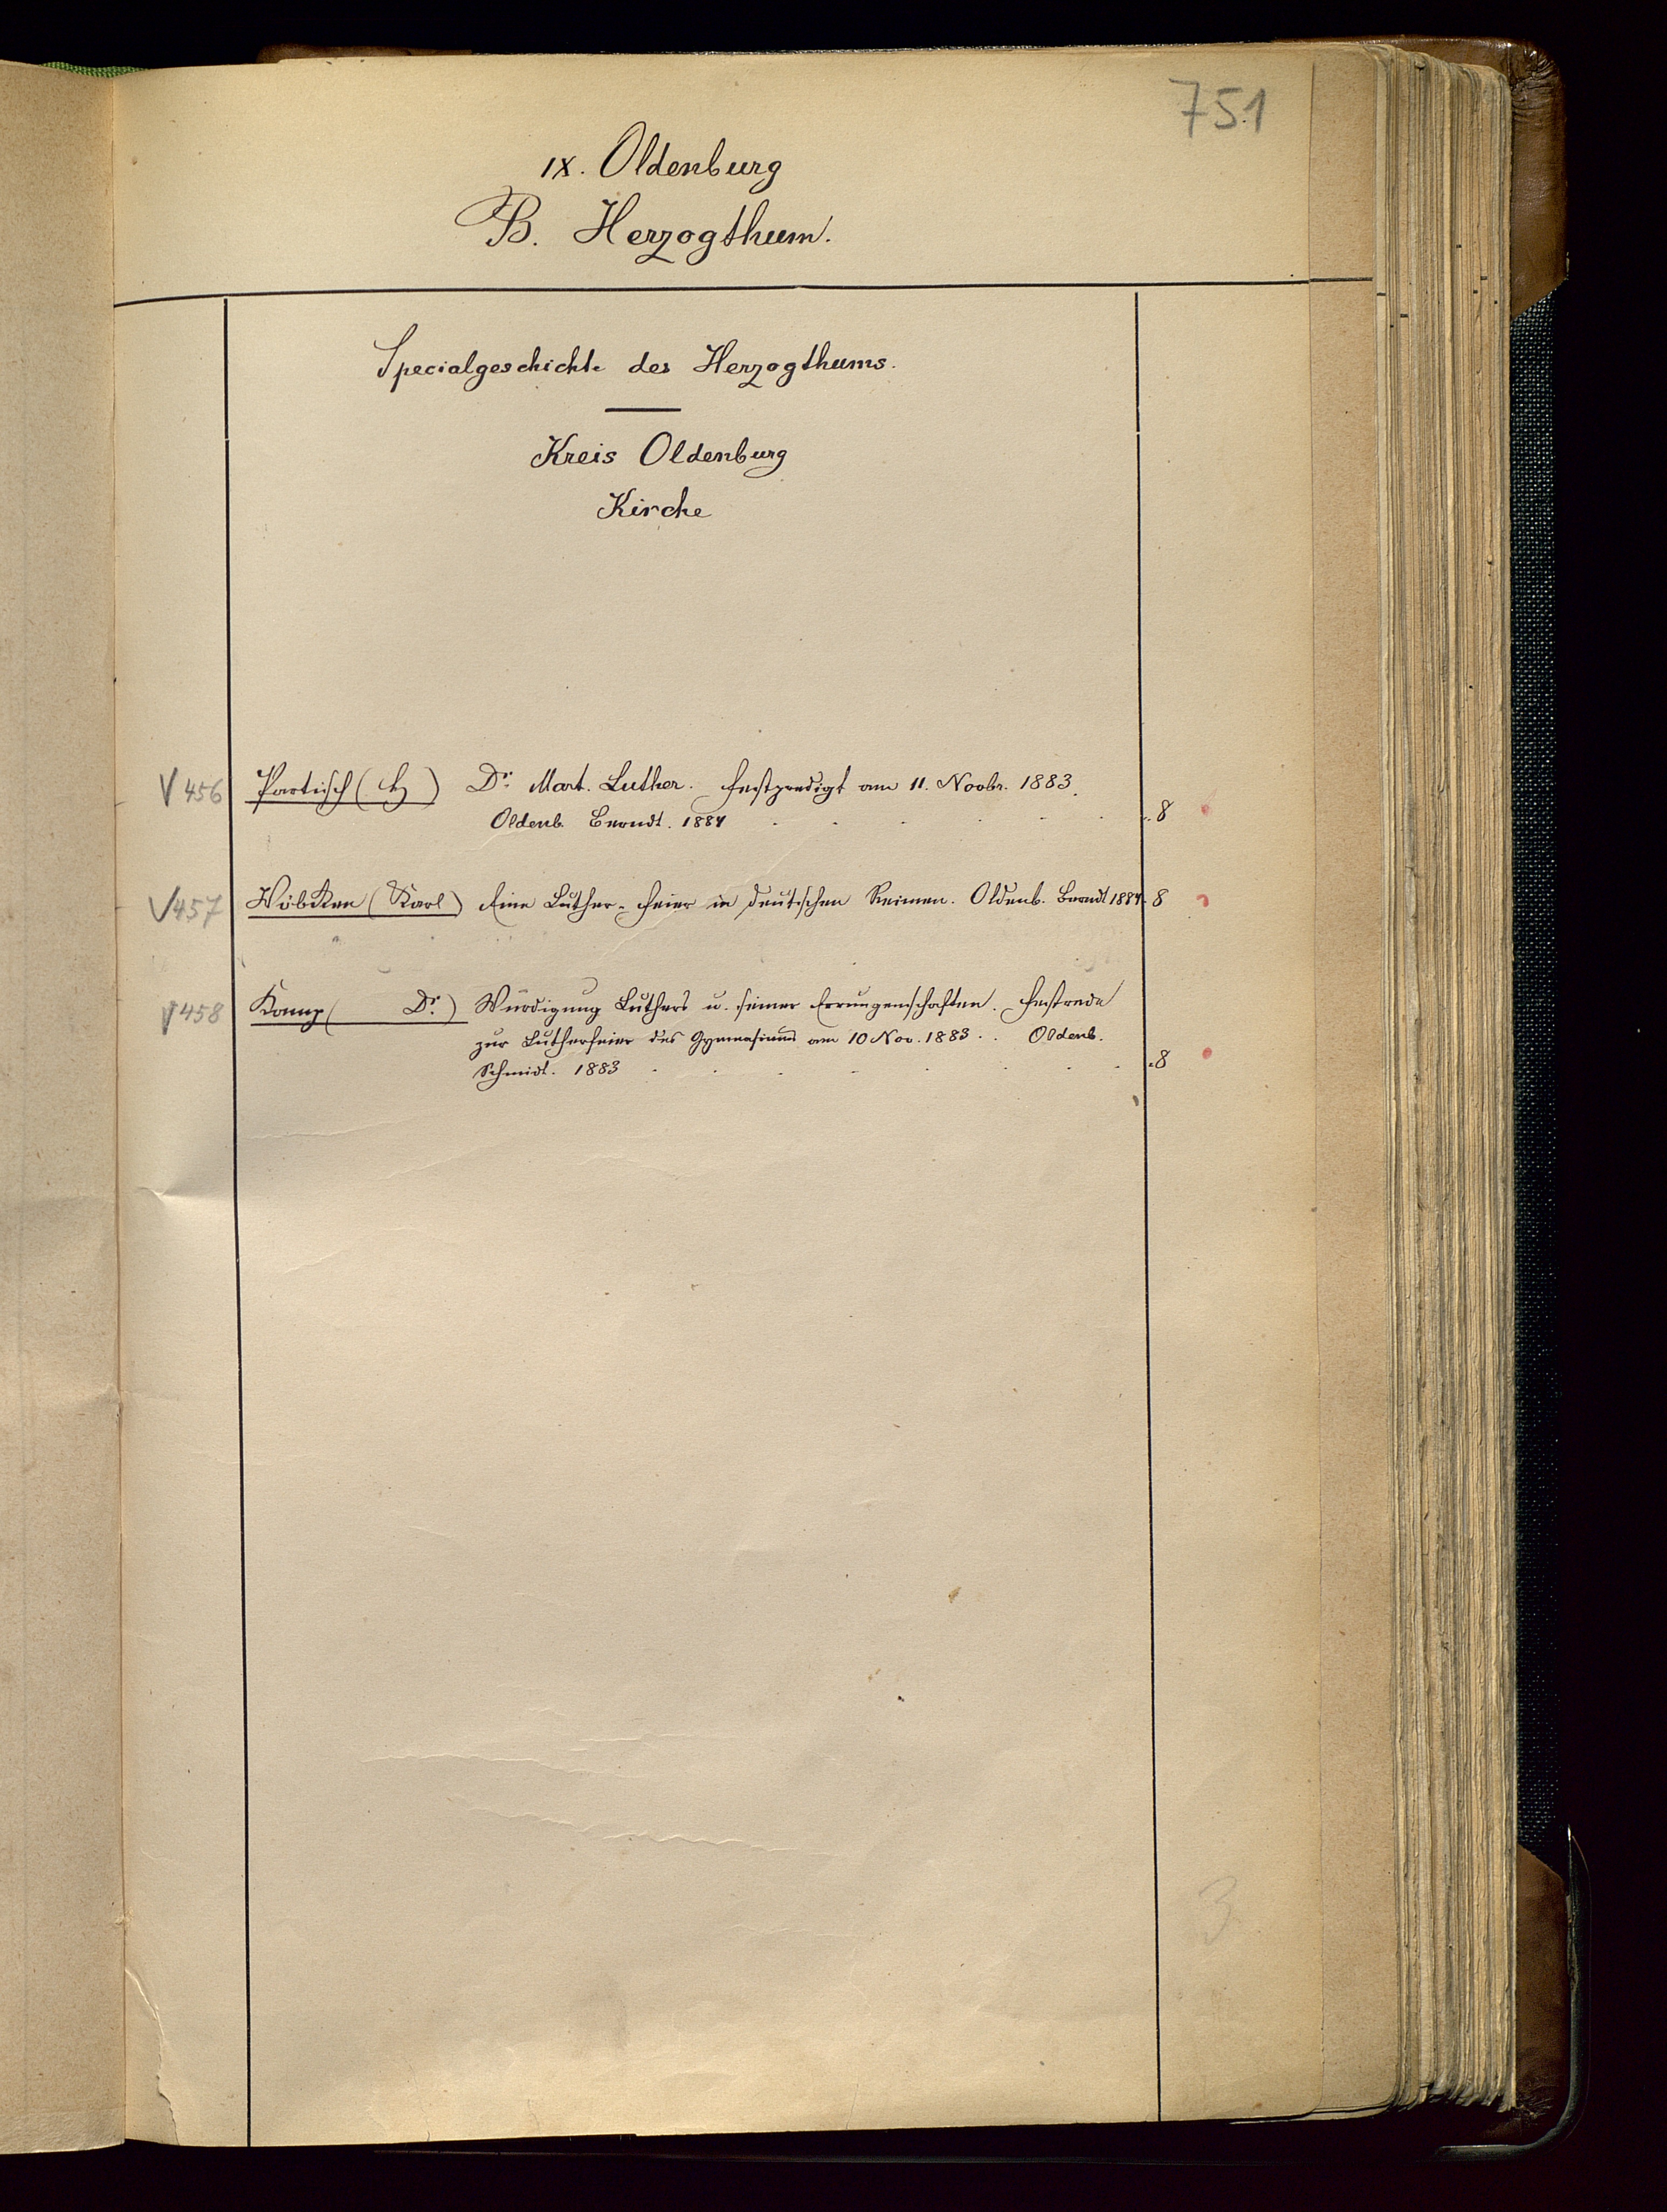 751
IX. Oldenburg
B. Herzogthum.
Specialgeschichte des Herzogthums.
Kreis Oldenburg
Kirche
V 456 Partisch (H) Dr. Mart. Luther. Festpredigt am 11. Novbr. 1883.
Oldenb. Berndt. 1884 . . . . . . 8
V 457 Wöbken (Karl) Eine Luther-Feier in deutschen Reimen. Oldenb. Berndt 1884. 8
V 458 Kamp ( Dr.) Würdigung Luthers u. seiner Errungenschaften. Festrede
zur Lutherfeier des Gymnasiums am 10 Nov. 1883. . Oldenb.
Schmidt. 1883 . . . . . . . . 8
3